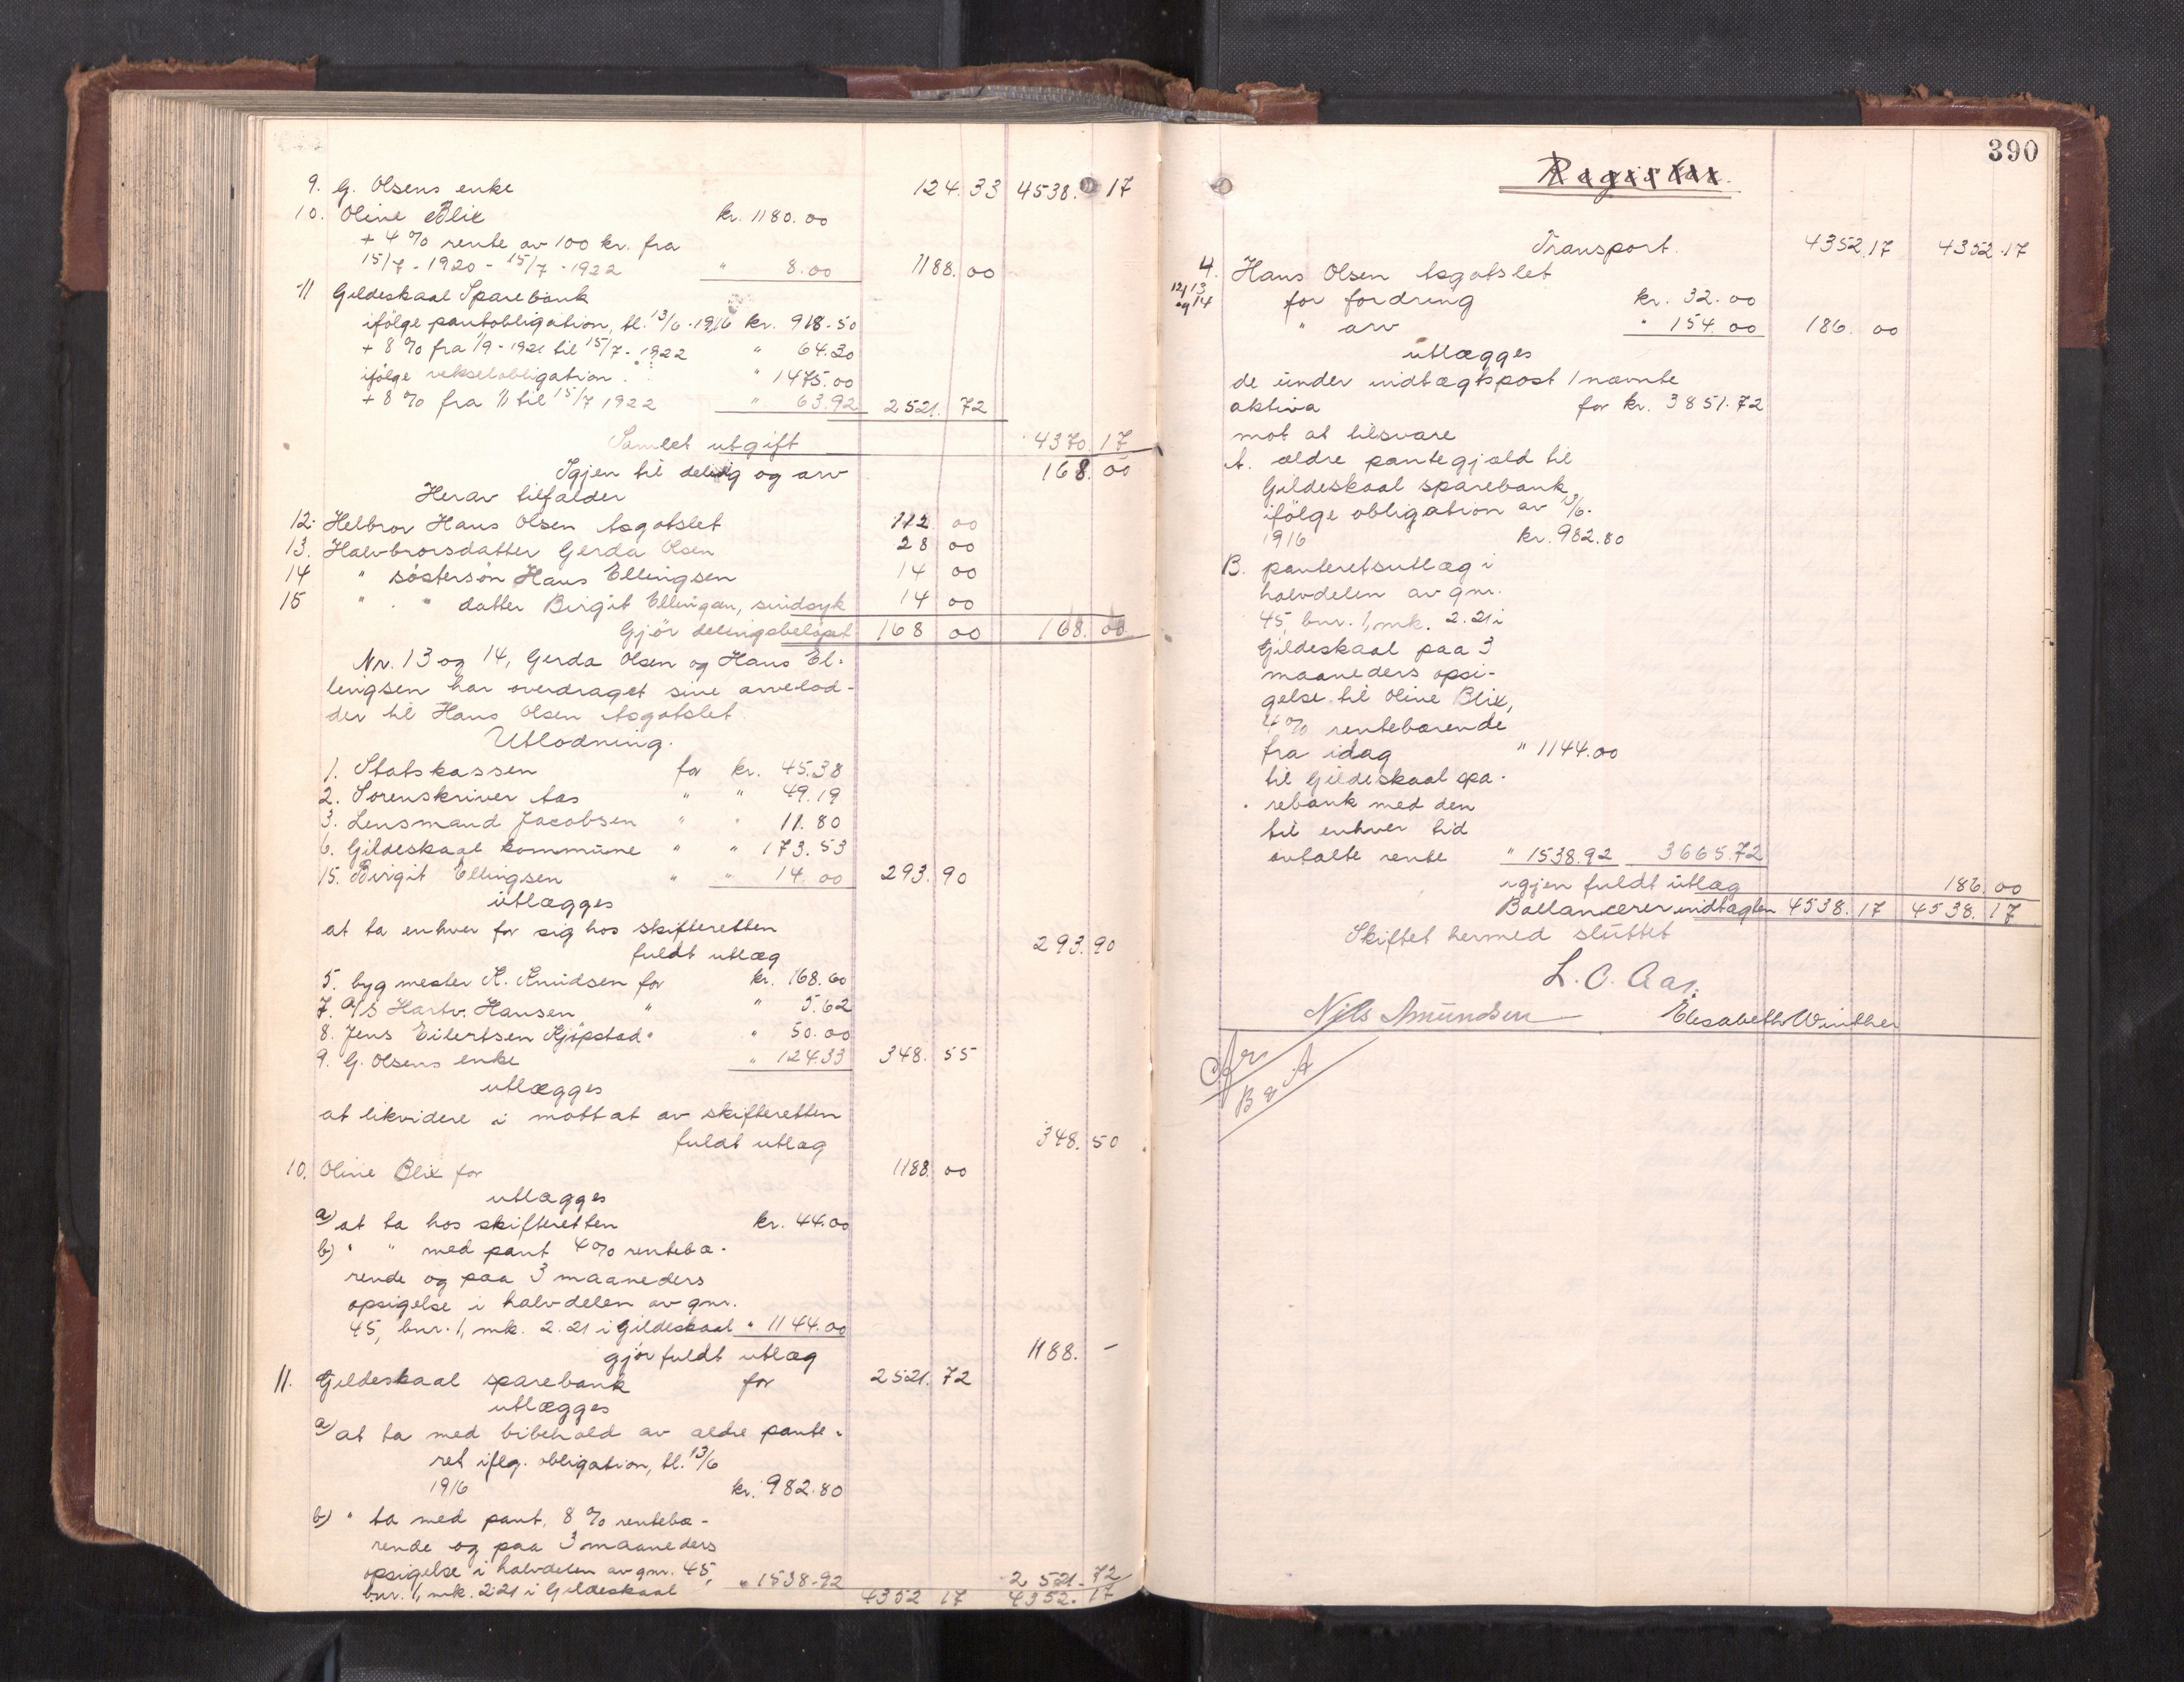 9. G. Olsens enke 124.33 4538. 17
10. Oline Blix kr. 1180.00
+ 4 % rente av 100 kr. fra
15/7 - 1920 - 15/7 - 1922 " 8.00 1188.00
11 Gildeskaal Sparebank
ifölge pantobligation, tl. 13/6 - 1916 kr. 918.50
+ 8 % fra 1/9 - 1921 til 15/7 - 1922 " 64.30
ifölge vekselobligation " 1475.00
+ 8 % fra 1/1 til 15/7 1922 " 63.92 2521.72
Samlet utgift 4370 17
Igjen til deling og arv 168.00
Herav tilfalder
12. Helbror Hans Olsen Asgotslet 112 00
13. Halvbrorsdatter Gerda Olsen 28 00
14 " söstersön Hans Ellingsen 14 00
15 " " datter Birgit Ellingsen, sindsyk 14 00
Gjör delingsbelöpet 168 00 168.00
Nr. 13 og 14, Gerda Olsen og Hans El-
lingsen har overdraget sine arvelod-
der til Hans Olsen Asgotslet.
Utlodning.
1. Statskassen for kr. 45.38
2. Sorenskriver Aas " " 49.19
3. Lensmand Jacobsen " " 11.80
6. Gildeskaal kommune " " 173.53
15. Birgit Ellingsen " " 14.00 293.90
utlægges
at ta enhver for sig hos skifteretten
fuldt utlæg 293.90
5. bygmester K. Knudsen for kr. 168.60
7. A/S Hartv. Hansen " " 5.62
8. Jens Eilertsen Kjöpstad " " 50.00
9. G. Olsens enke " 124.33 348.55
utlægges
at likvidere i mottat av skifteretten
fuldt utlæg 348.50
10. Oline Blix for 1188.00
utlægges
a) at ta hos skifteretten kr. 44.00
b) " " med pant 4% rentebæ-
rende og paa 3 maaneders
opsigelse i halvdelen av gnr.
45, bnr. 1, mk. 2.21 i Gildeskaal " 1144.00
gjör fuldt utlæg 1188. -
11. Gildeskaal sparebank for 2521.72
utlægges
a) at ta med bibehold av ældre pante-
ret iflg. obligation, tl. 13/6
1916 kr. 982.80
b) " ta med pant, 8 % rentebæ-
rende og paa 3 maaneders
opsigelse i halvdelen av gnr. 45,
bnr. 1, mk. 2.21 i Gildeskaal " 1538.92 2521.72
4352 17 4352.17
390
Register.
Transport. 4352.17 4352.17
4. Hans Olsen Asgotslet
12, 13
og 14
for fordring kr. 32.00
" arv " 154.00 186.00
utlægges
de under indtægtspost 1 nævnte
aktiva for kr. 3851.72
mot at tilsvare
A. ældre pantegjæld til
Gildeskaal sparebank
ifölge obligation av 13/6.
1916 kr. 982.80
B. panteretsutlæg i
halvdelen av gnr.
45, bnr. 1, mk. 2.21 i
Gildeskaal paa 3
maaneders opsi-
gelse til Oline Blix,
4% rentebærende
fra idag " 1144.00
til Gildeskaal spa-
rebank med den
til enhver tid
avtalte rente " 1538.92 3665.72
igjen fuldt utlæg 186.00
Ballancerer indtægten 4538.17 4538.17
Skiftet hermed sluttet
L. O. Aas.
Nils Amundsen Elisabeth Winther